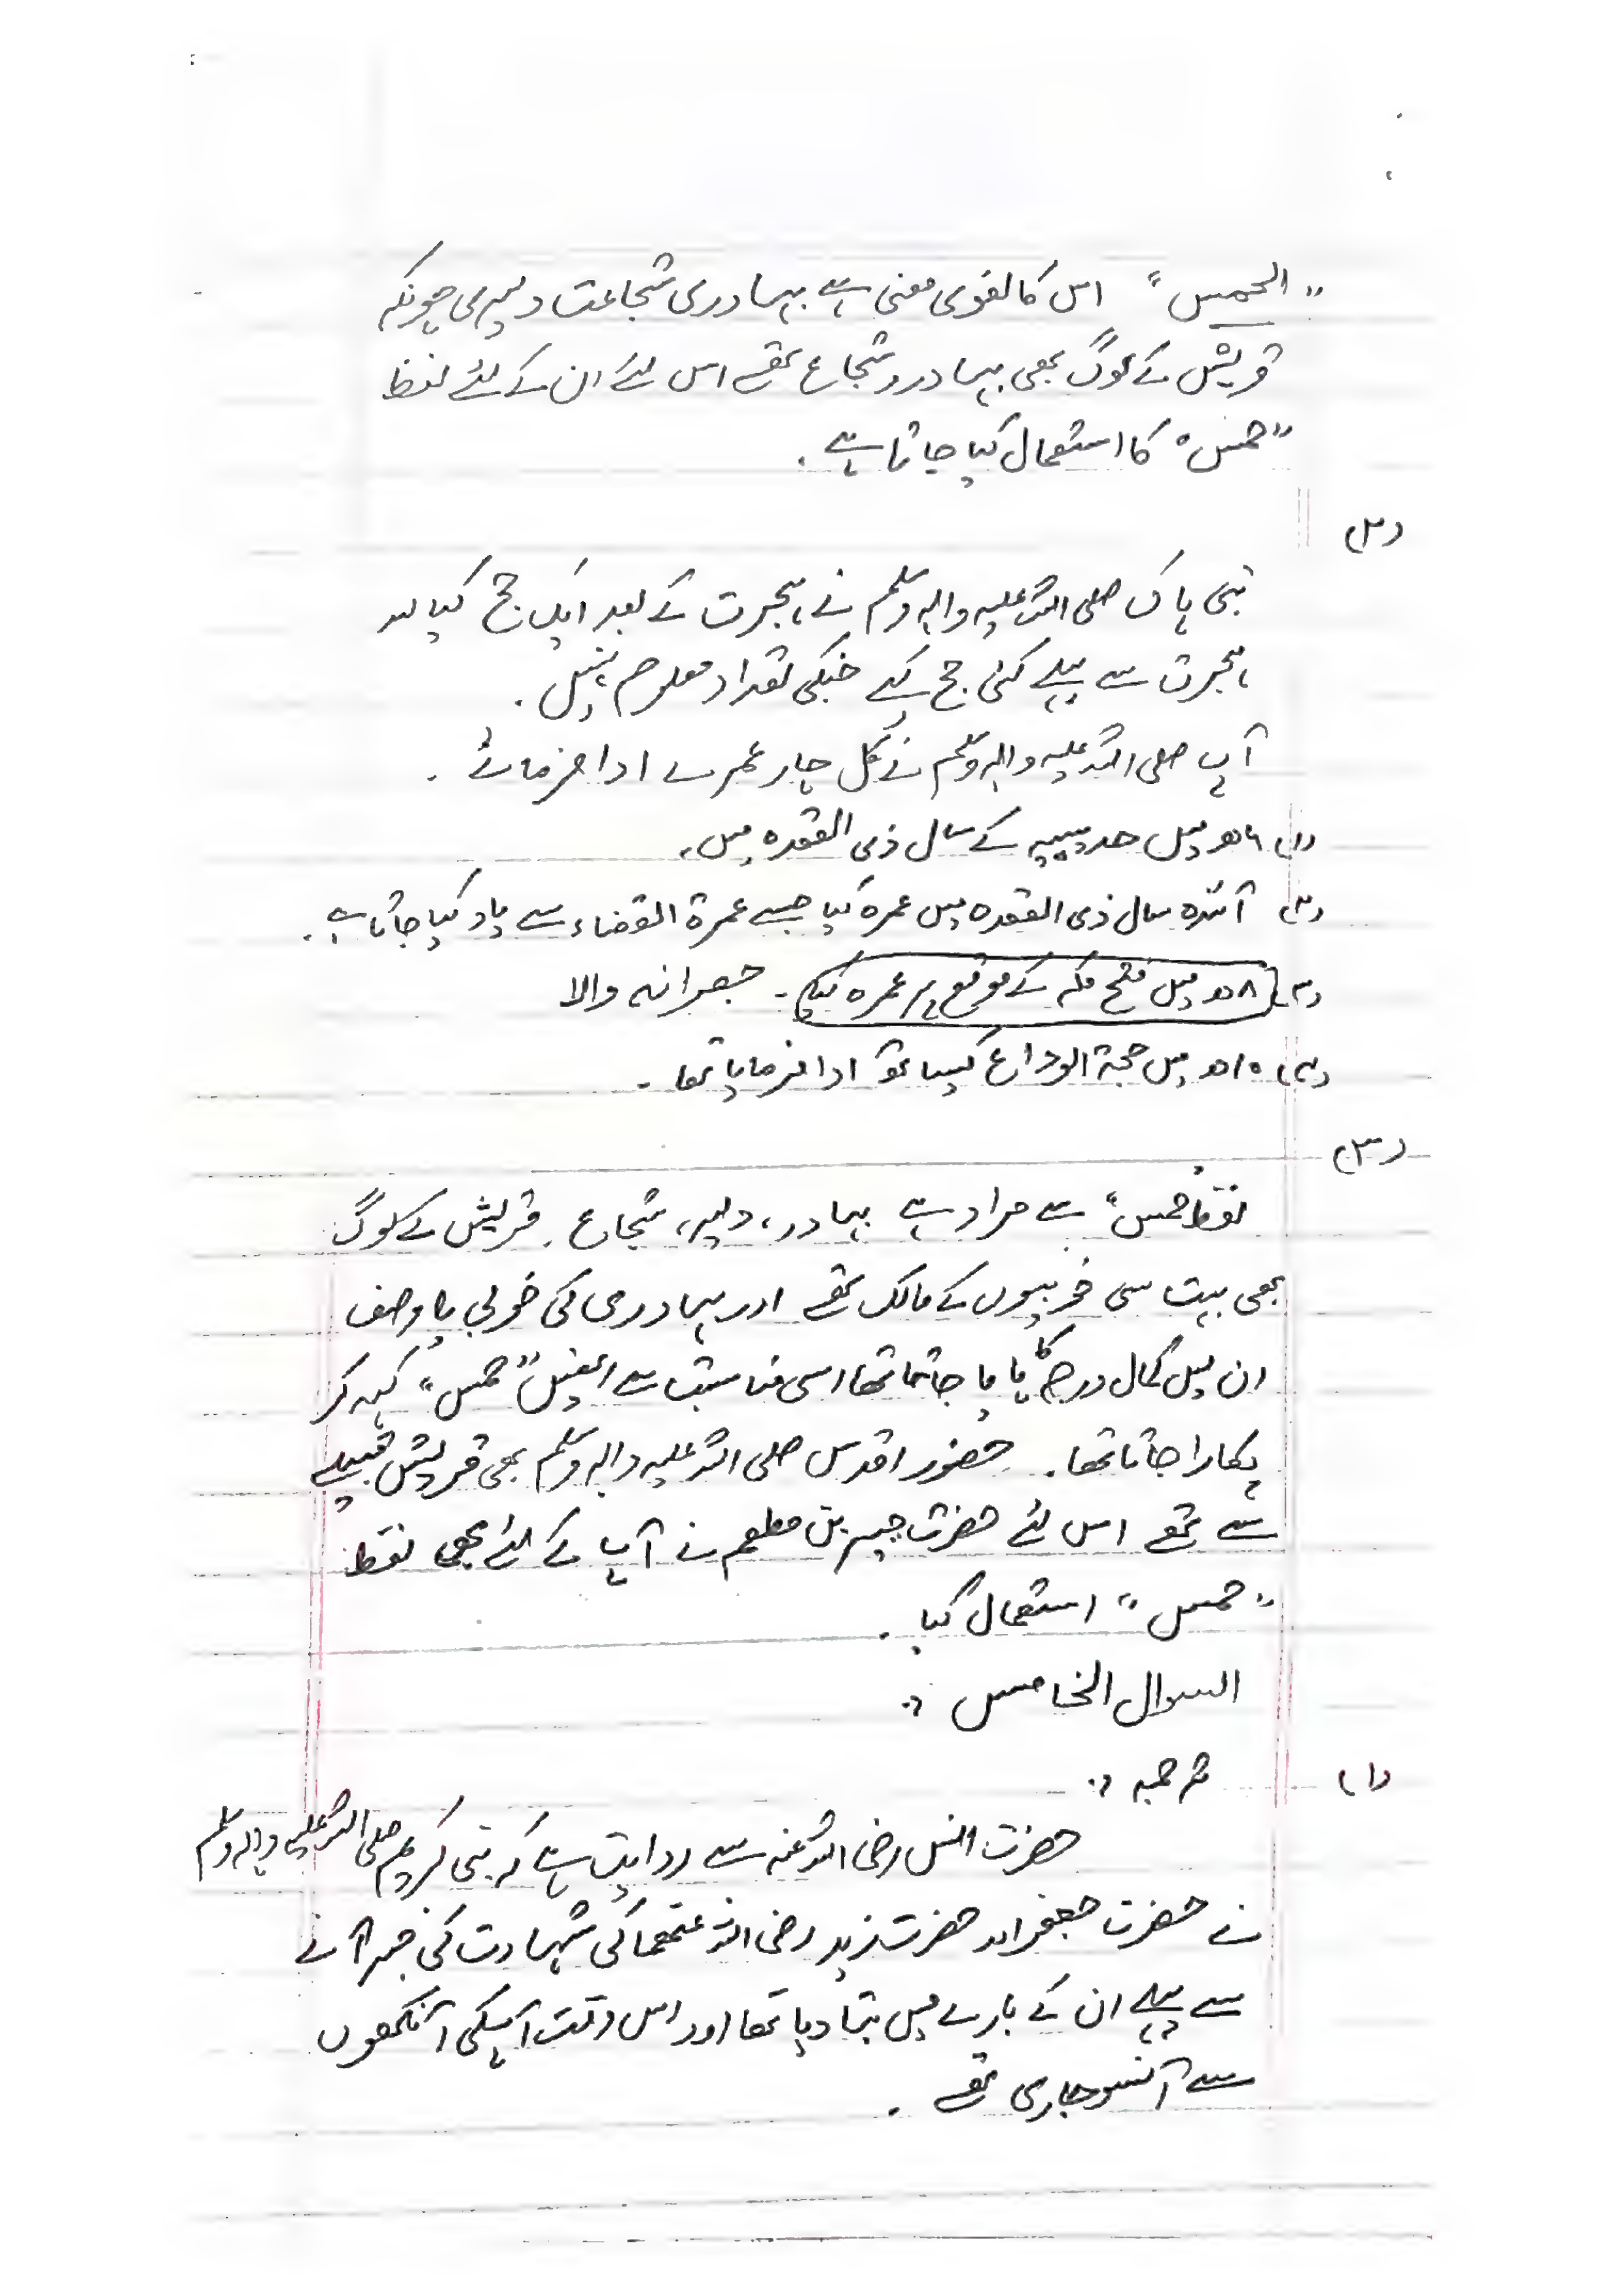 "الحمس" اس کا لغوی معنی ہے بہادری شجاعت دلیری چونکہ
قریش کے لوگ بھی بہادر و شجاع تھے اس لئے ان کے لئے لفظ
"حمس" کا استعمال کیا جاتا ہے۔
(۲)
نبی پاک صلی اللہ علیہ والہ وسلم نے ہجرت کے بعد ایک حج کیا اور
ہجرت سے پہلے کئی حج کیے جنکی تعداد معلوم نہیں۔
آپ صلی اللہ علیہ والہ وسلم نے کل چار عمرے ادا فرمائے۔
(۱) ۶ھ میں حدیبیہ کے سال ذی القعدہ میں۔
(۲) آئندہ سال ذی القعدہ میں عمرہ کیا جسے عمرۃ القضاء سے یاد کیا جاتا ہے۔
(۳) ۸ھ میں فتح مکہ کے موقع پر عمرہ کیا۔ جعرانہ والا
(۴) ۱۰ھ میں حجۃ الوداع کیساتھ ادا فرمایا تھا۔
(۳)
لفظ "حمس" سے مراد ہے بہادر، دلیر، شجاع۔ قریش کے لوگ
بھی بہت سی خوبیوں کے مالک تھے اور بہادری کی خوبی یا وصف
ان میں کمال درجہ کا پایا جاتا تھا اسی مناسبت سے انھیں "حمس" کہہ کر
پکارا جاتا تھا۔ حضور اقدس صلی اللہ علیہ والہ وسلم بھی قریش قبیلے
سے تھے اس لئے حضرت جبیر بن مطعم نے آپ کے لئے بھی لفظ
"حمس" استعمال کیا۔
السوال الخامس :
(۱) ترجمہ :
حضرت انس رضی اللہ عنہ سے روایت ہے کہ نبی کریم صلی اللہ علیہ والہ وسلم
نے حضرت جعفر اور حضرت زید رضی اللہ عنھما کی شہادت کی خبر آنے
سے پہلے ان کے بارے میں بتا دیا تھا اور اس وقت آپکی آنکھوں
سے آنسو جاری تھے۔